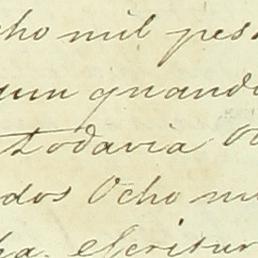 cho mil pes
un quando
todavia O
dos Ocho m
ha. Escritur